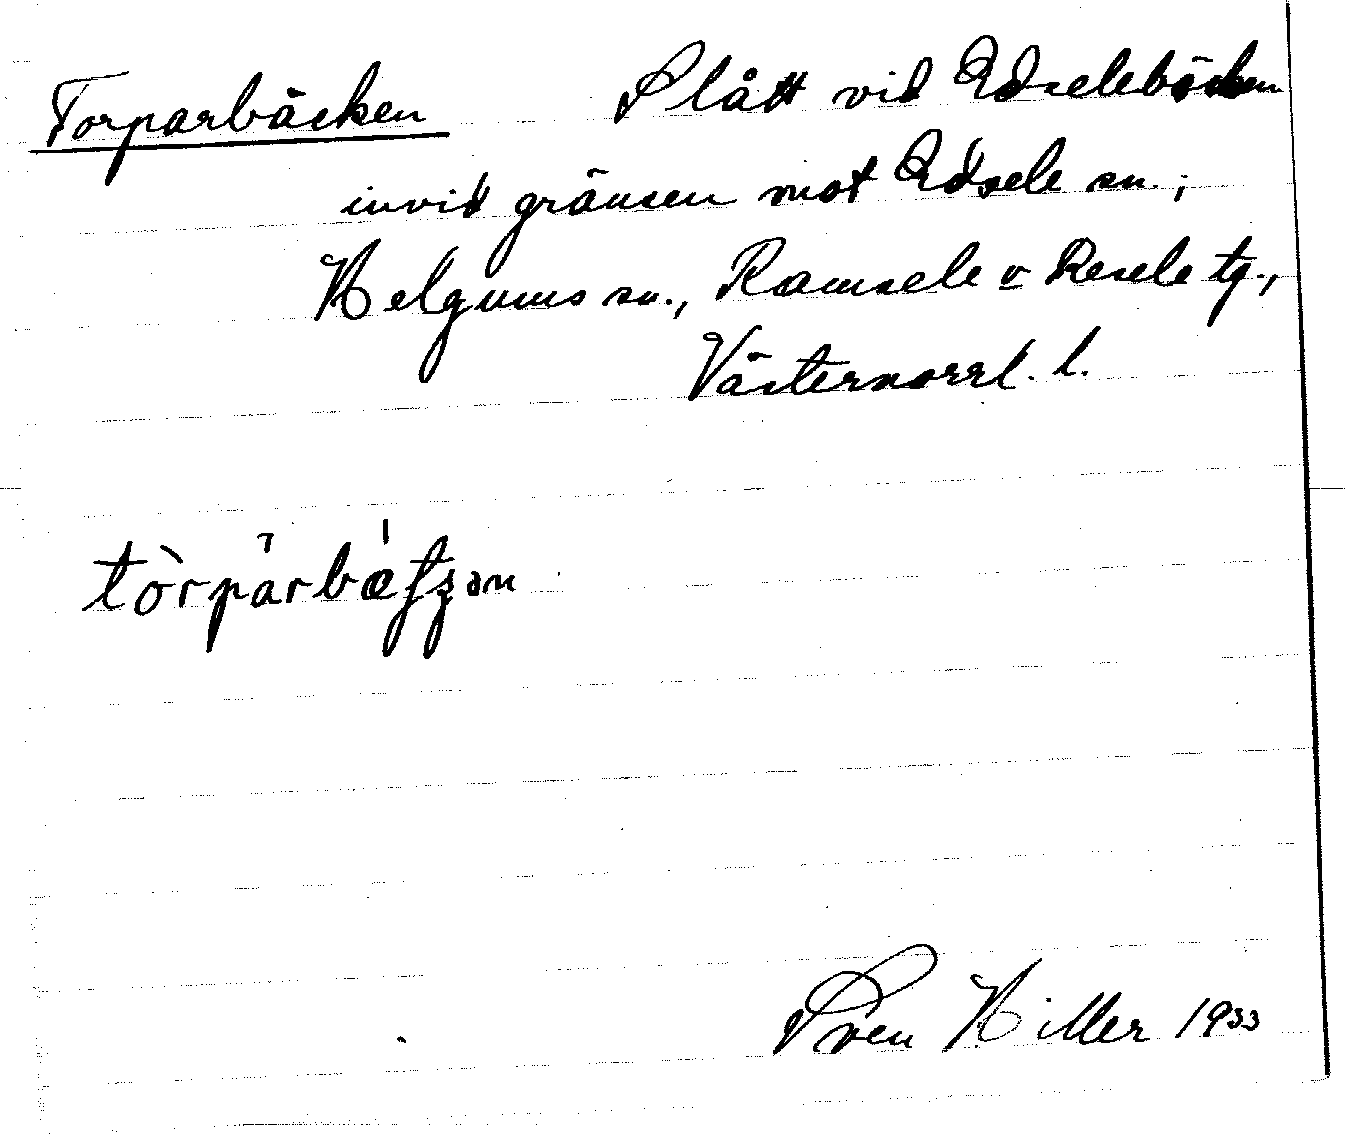 Torparbäcken Slått vid Edselebäcken
invid gränsen mot Edsele sn.,
Helgums sn., Ramsele o Resele tg.,
Västernorrl. l.
tòrpārbæ̍tʃən
Sven Hiller 1933